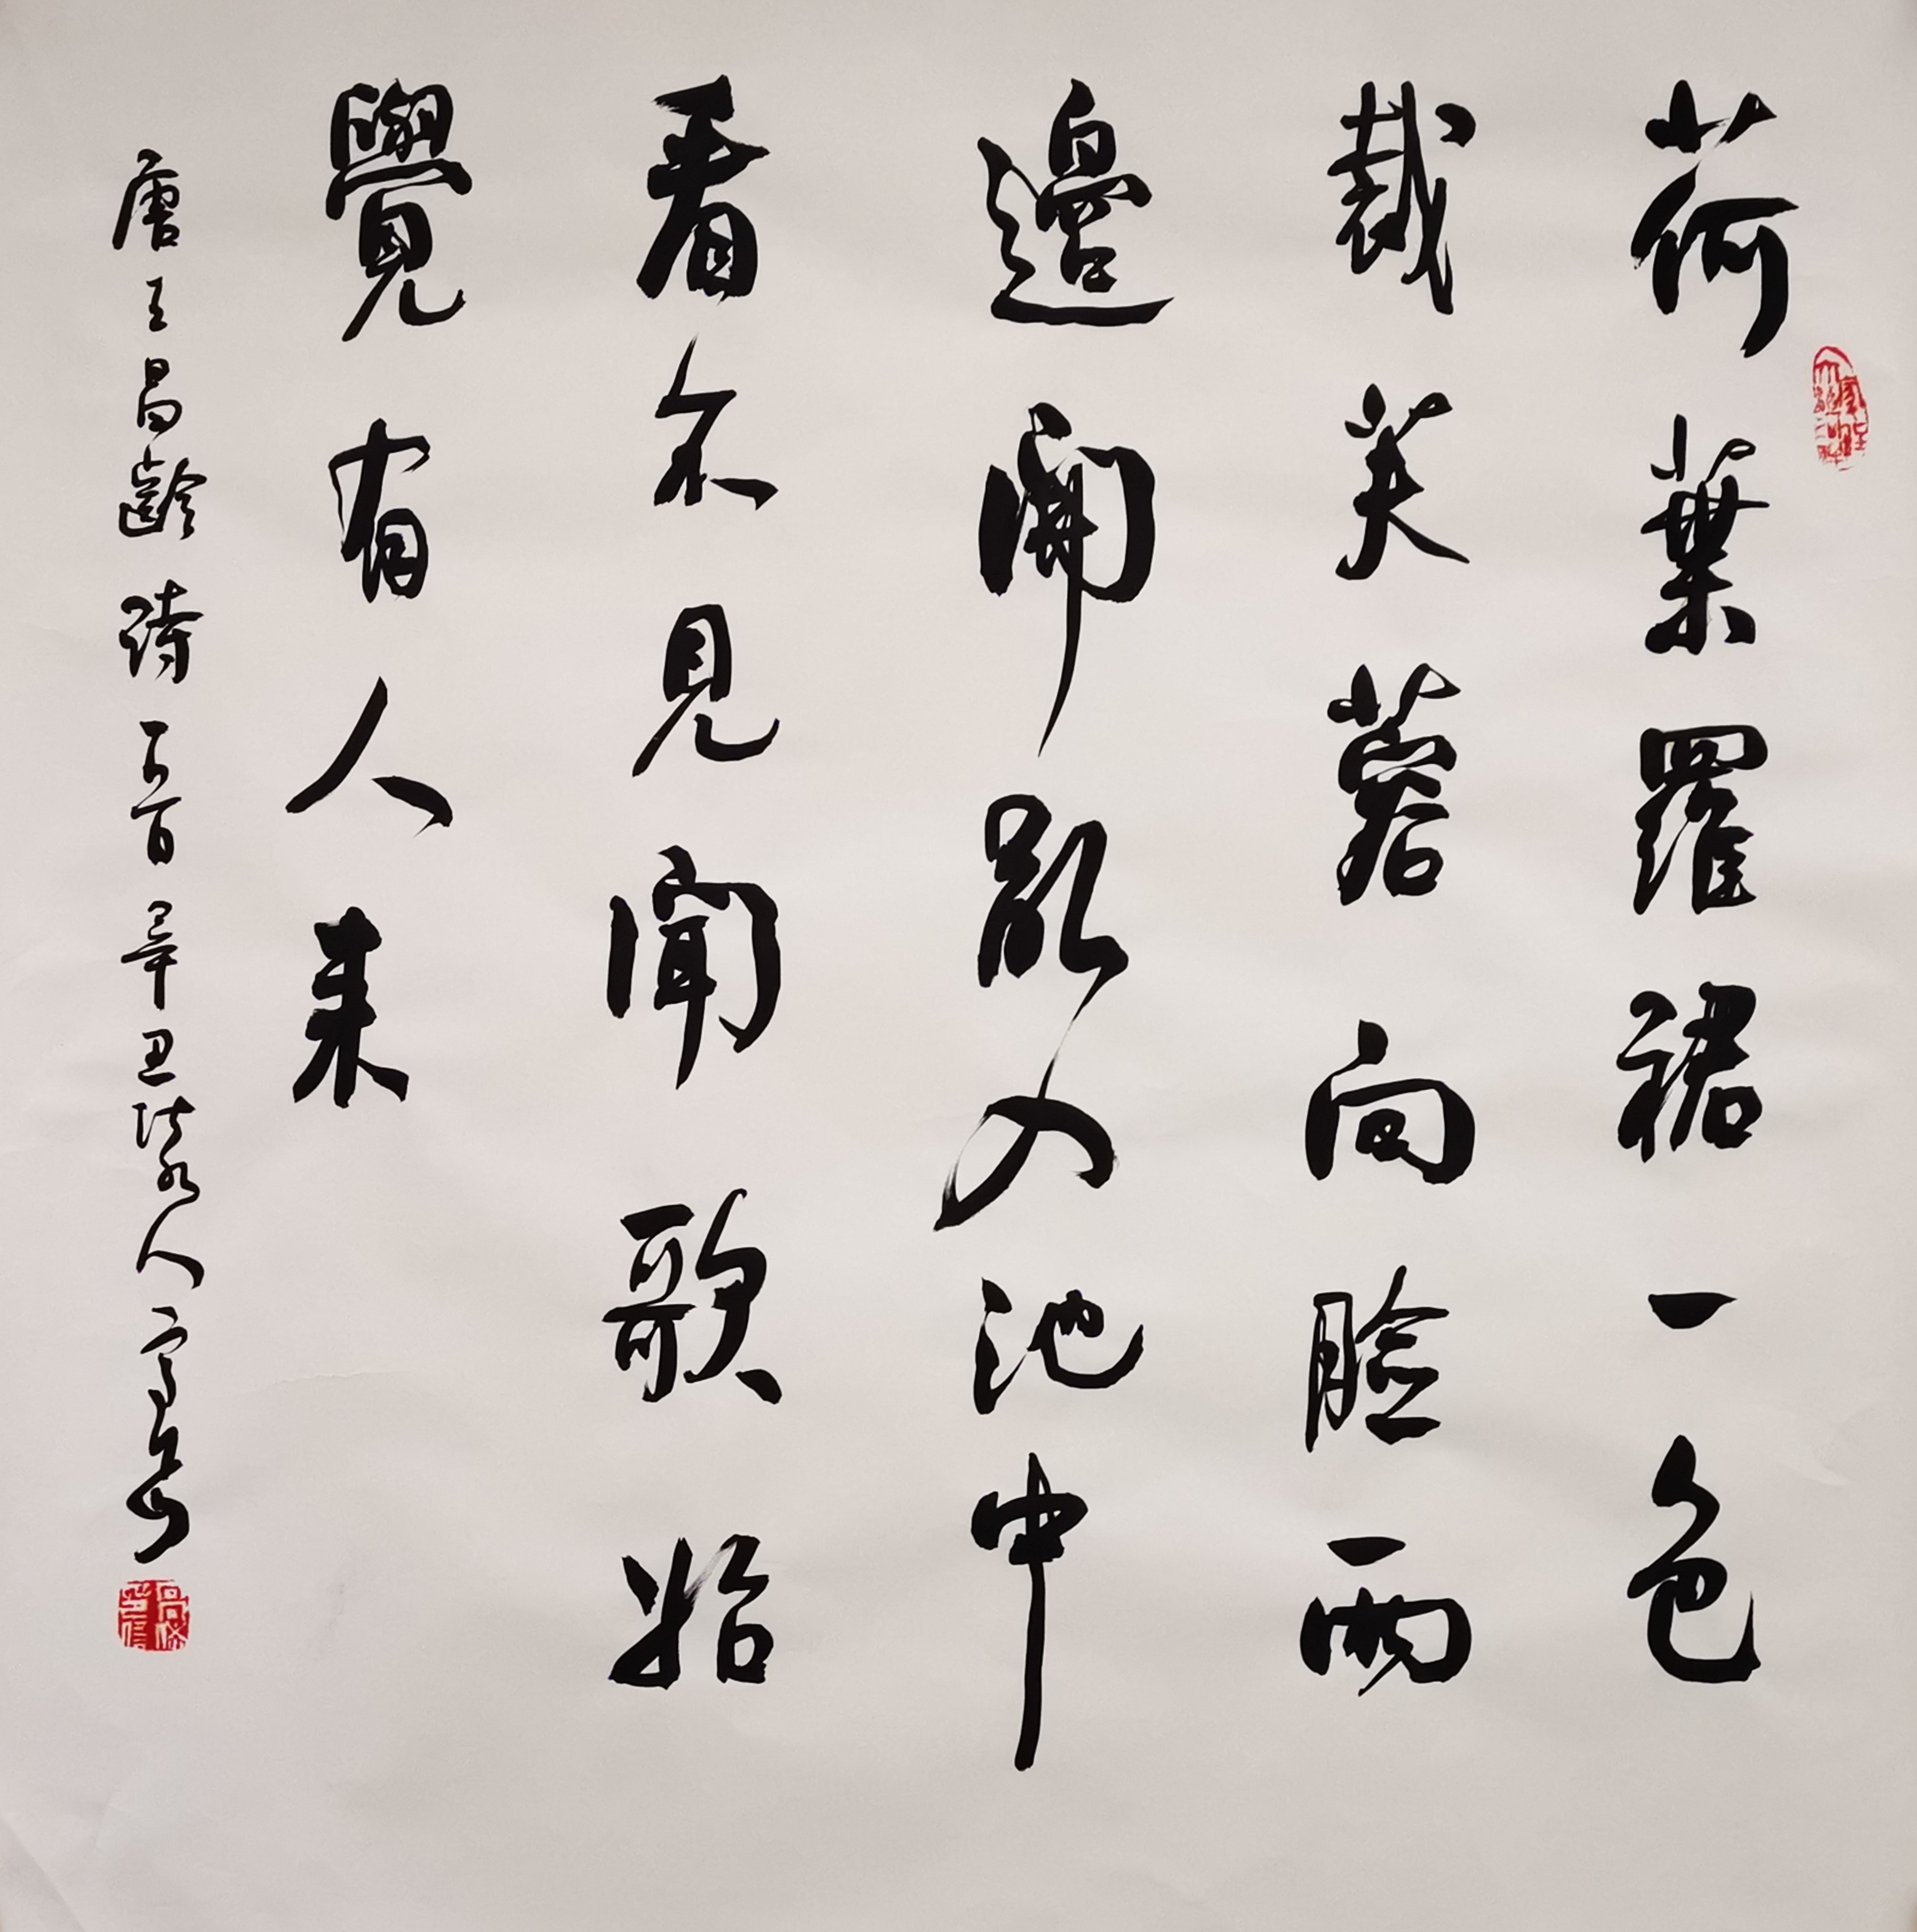 荷葉羅裙一色
裁芙蓉向臉兩
邊開亂入池中
看不見聞歌始
覺有人来
唐王昌齡詩一首辛丑